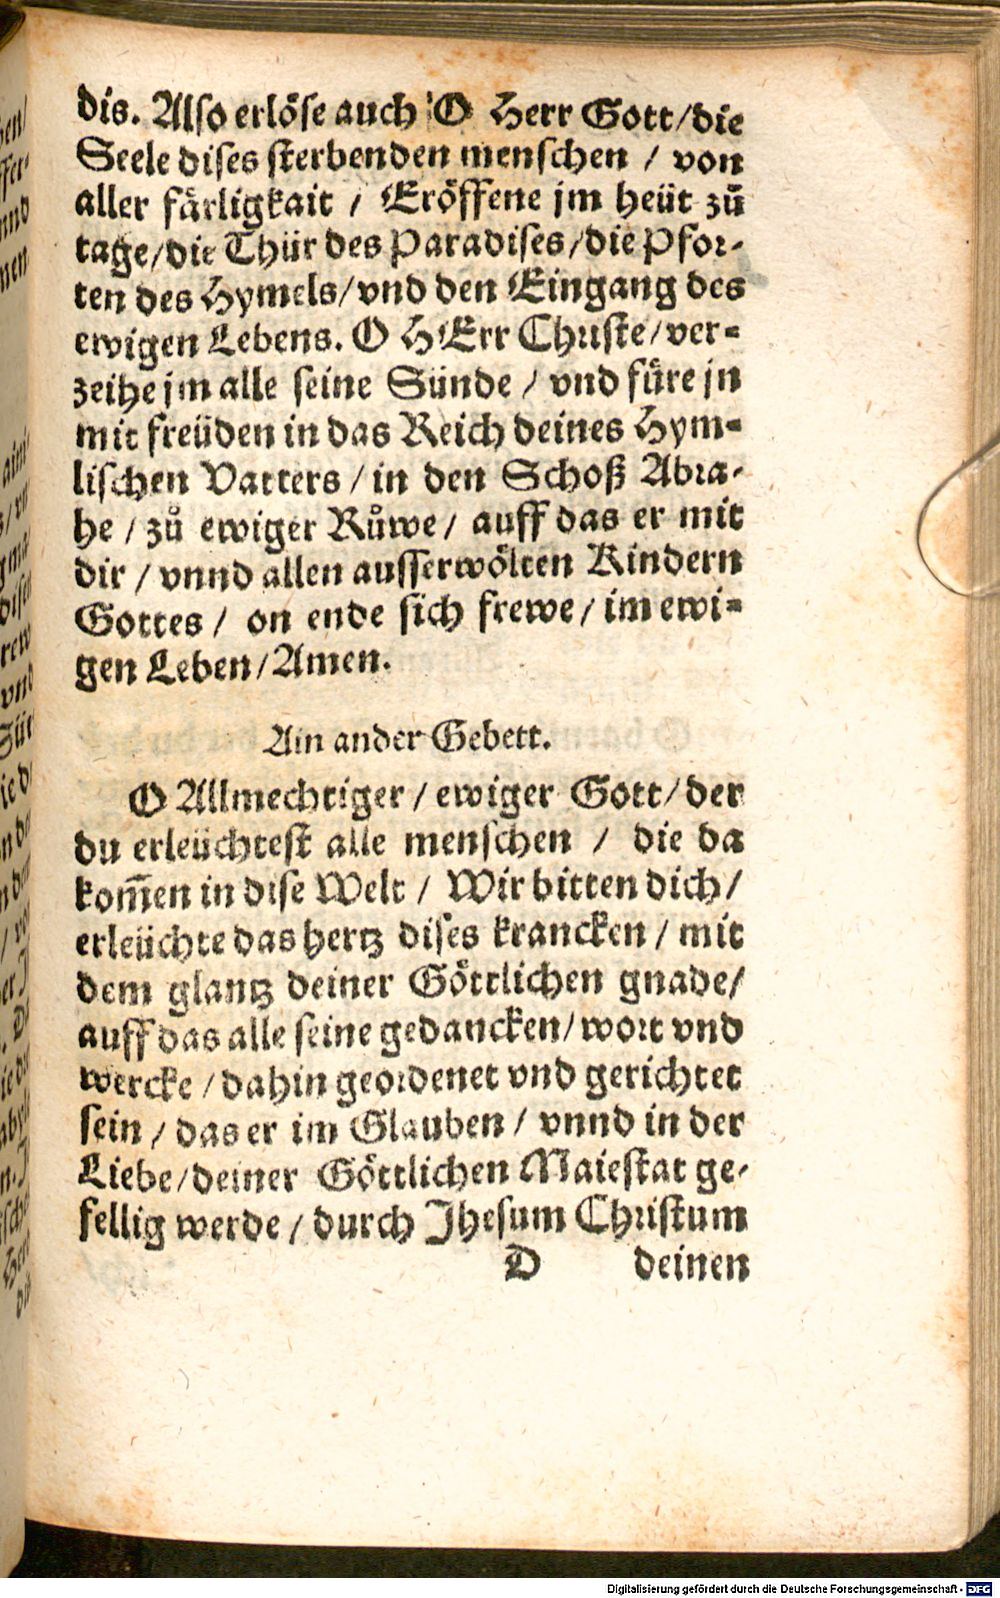 dis. Also erlöse auch O Herr Gott/die
Seele dises sterbenden menschen / von
aller färligkait / Eröffene jm heüt zů
tage/die Thür des Paradises/die Pfor-
ten des Hymels/vnd den Eingang des
ewigen Lebens. O HErr Christe/ver-
zeihe jm alle seine Sünde / vnd füre jn
mit freüden in das Reich deines Hym-
lischen Vatters / in den Schoß Abra-
he / zů ewiger Růwe / auff das er mit
dir / vnnd allen ausserwölten Kindern
Gottes / on ende sich frewe / im ewi-
gen Leben/Amen.
Ain ander Gebett.
O Allmechtiger / ewiger Gott/der
du erleüchtest alle menschen / die da
kom̄en in dise Welt / Wir bitten dich/
erleüchte das hertz dises krancken / mit
dem glantz deiner Göttlichen gnade/
auff das alle seine gedancken/wort vnd
wercke / dahin geordenet vnd gerichtet
sein / das er im Glauben / vnnd in der
Liebe/deiner Göttlichen Maiestat ge-
fellig werde / durch Jhesum Christum
D deinen
Digitalisierung gefördert durch die Deutsche Forschungsgemeinschaft - DFG